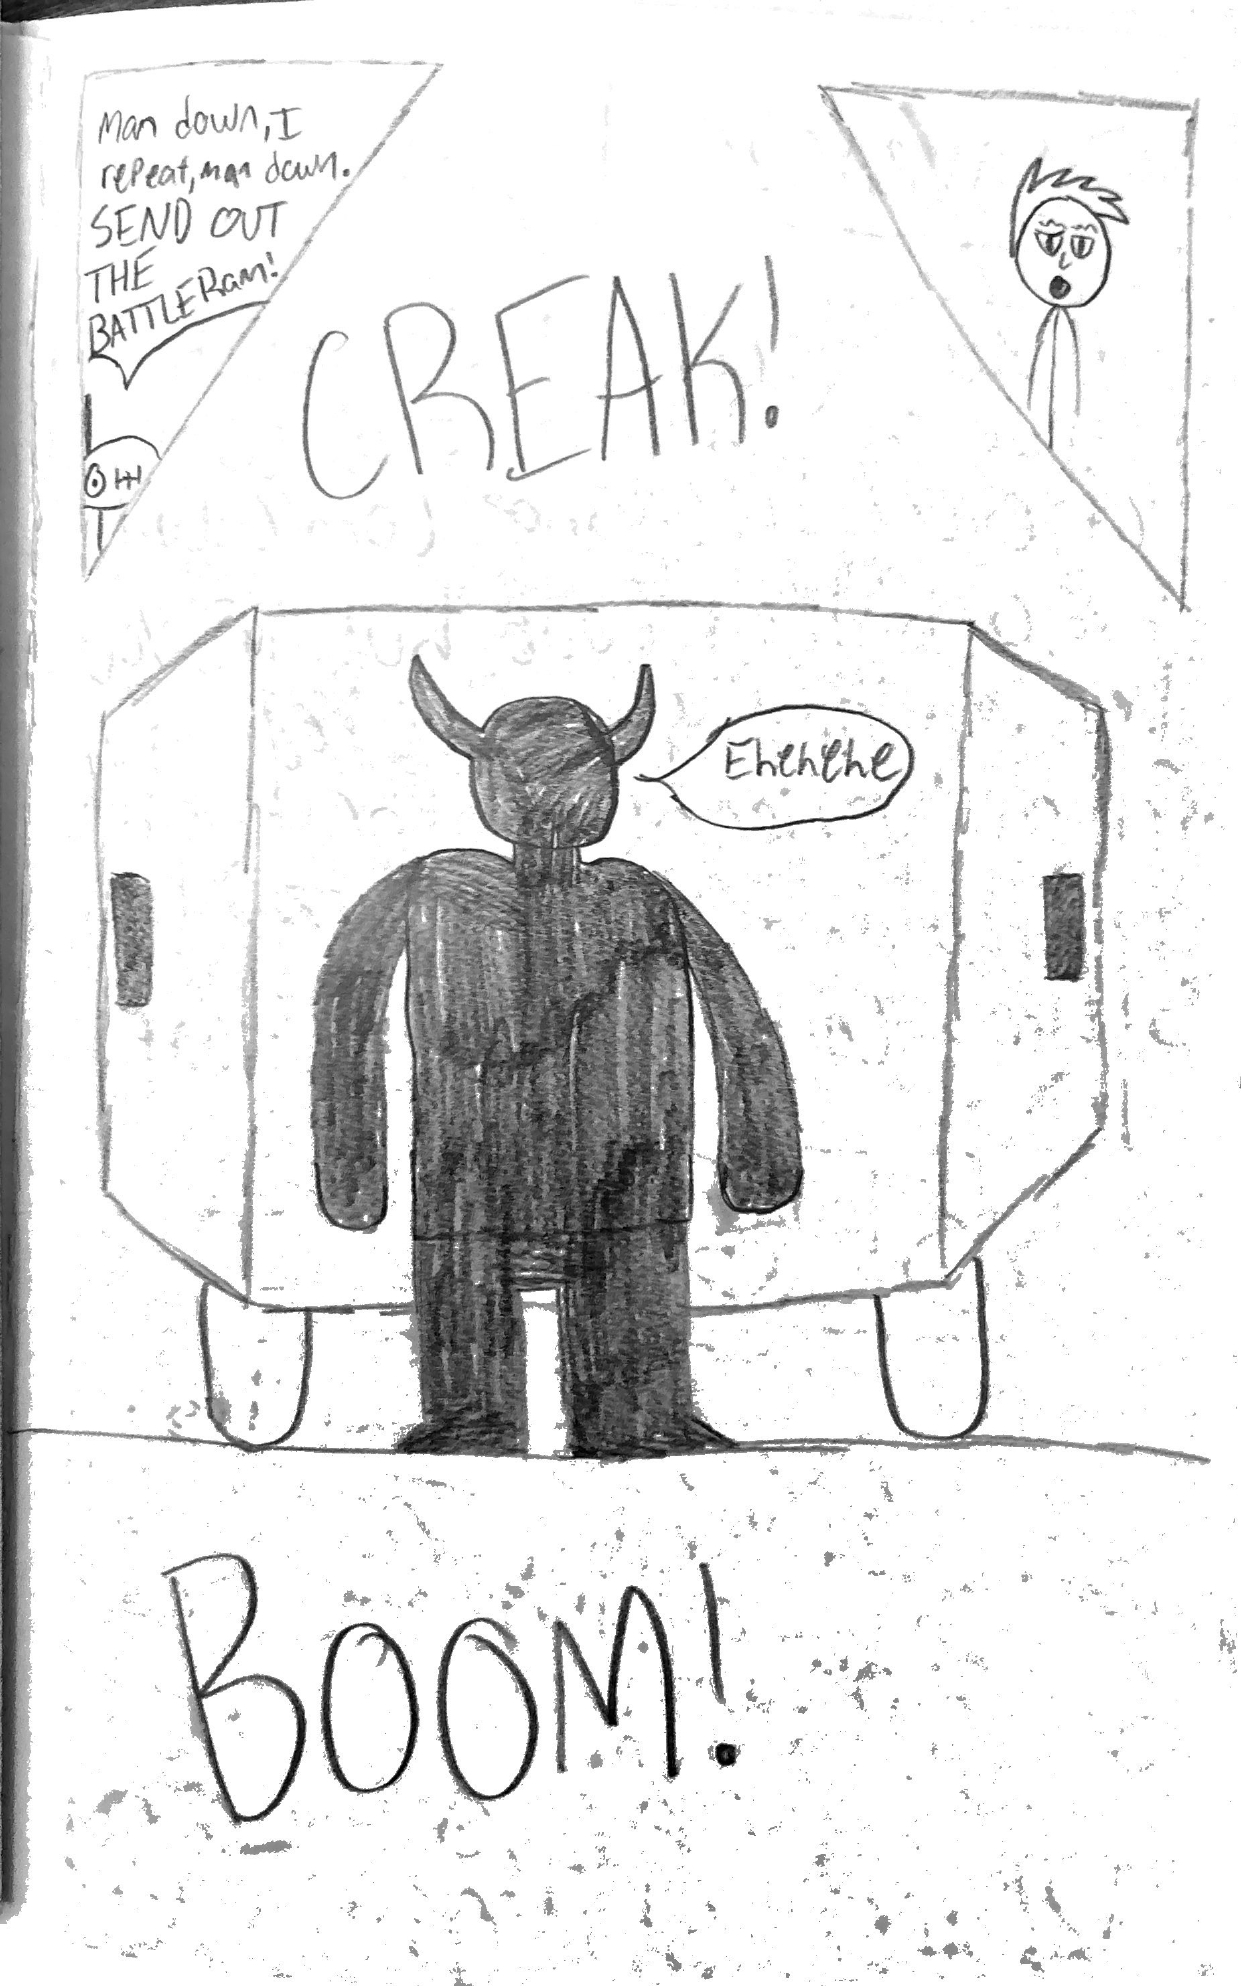 Man down, I
repeat, man down.
SEND OUT
THE
BATTLERam!
CREAK!
Ehehehe
BOOM!